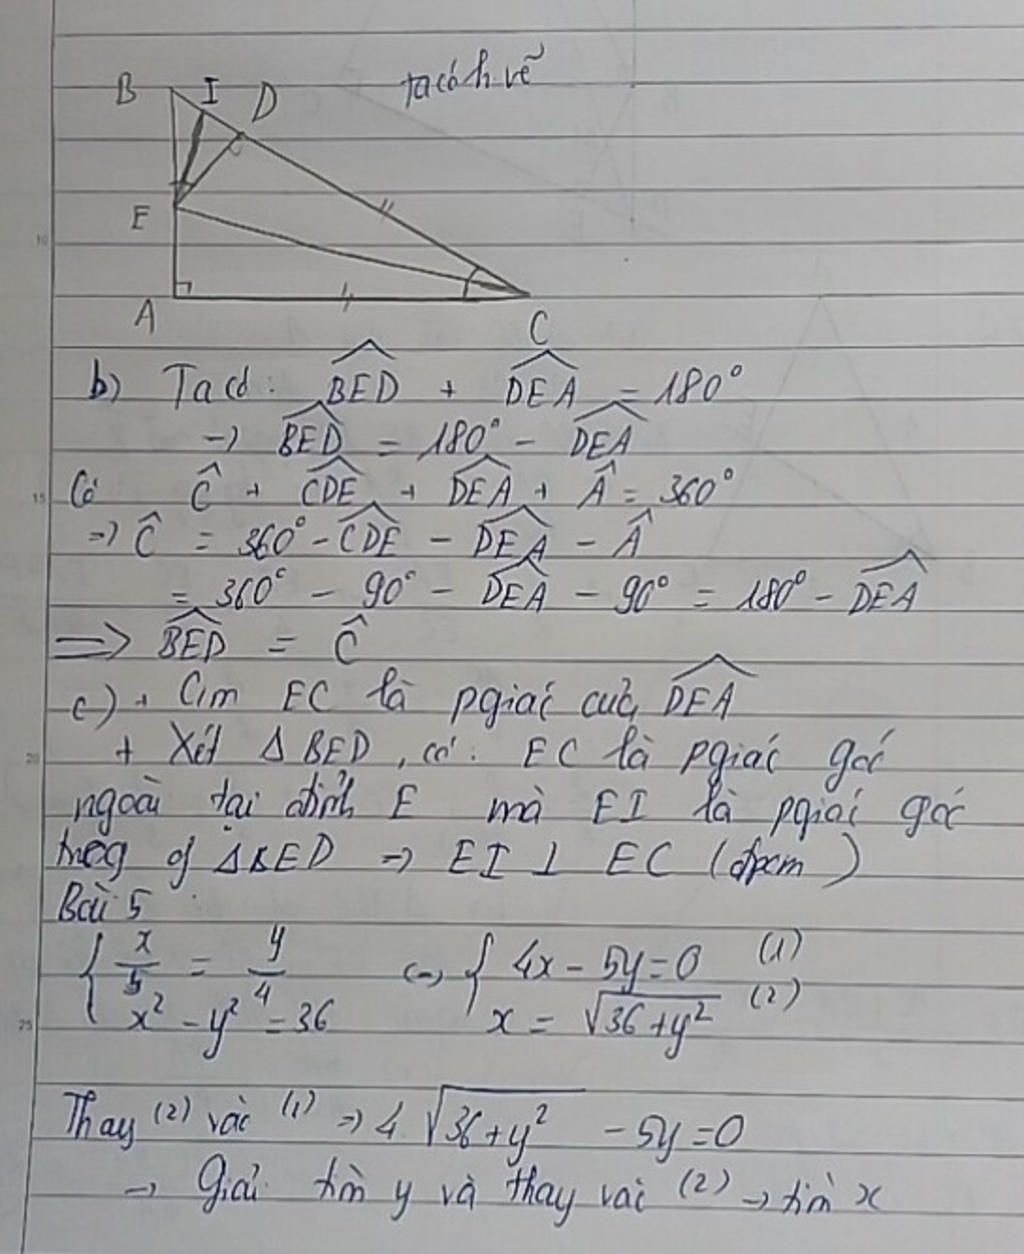 Ta có h vẽ
B I D
E
A
C
b) Ta có: \widehat{BED} + \widehat{DEA} = 180°
→ \widehat{BED} = 180° - \widehat{DEA}
Có Ĉ + \widehat{CDE} + \widehat{DEA} + Â = 360°
=> Ĉ = 360° - \widehat{CDE} - \widehat{DEA} - Â
= 360° - 90° - \widehat{DEA} - 90° = 180° - \widehat{DEA}
=> \widehat{BED} = Ĉ
c) + Cm EC là pgiác của \widehat{DEA}
+ Xét Δ BED, có: EC là pgiác góc
ngoài tại đỉnh E mà EI là pgiác góc
trog of ΔBED => EI ⊥ EC (đpcm)
Bài 5
{ x/5 = y/4 <=> { 4x - 5y = 0 (1)
x² - y² = 36 x = √(36 + y²) (2)
Thay (2) vào (1) => 4 √(36 + y²) - 5y = 0
→ Giải tìm y và thay vào (2) → tìm x